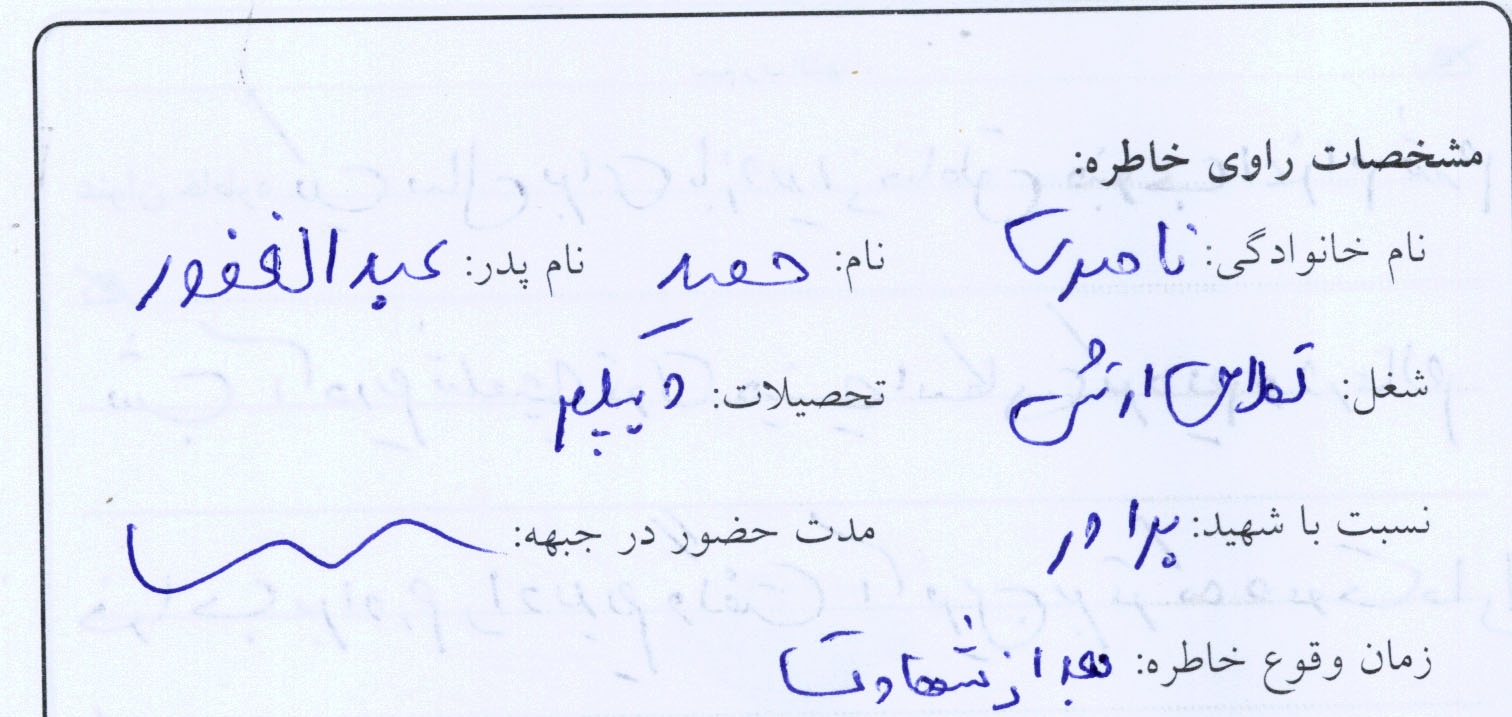 مشخصات راوی خاطره:
نام خانوادگی: ناصری نام: حمید نام پدر: عبدالغفور
شغل: ارتش تحصیلات: دیپلم
نسبت با شهید: برادر مدت حضور در جبهه:
زمان وقوع خاطره: بعد از شهادت